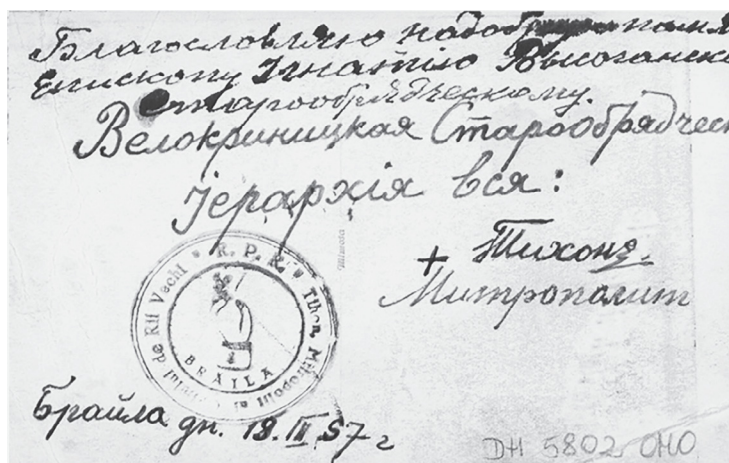 Благословляю на добр
Епископу Игнатію
Старообрядческому.
Белокриницкая Старообрядчес
Іерархія вся:
+ Тихонъ
Митрополит
R. P. R. Tihon, Mitropolit al de Rit Vechi
BRĂILA
Брайла дн. 18. III 57 г
DH 5802 OHO